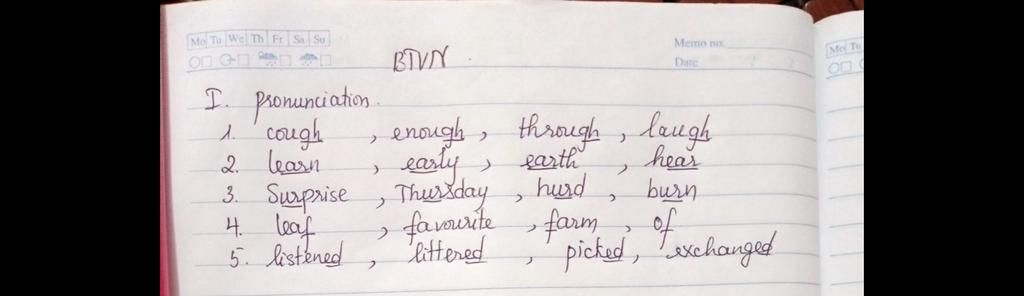 Mo Tu We Th Fr Sa Su
Memo no.
Mo Tu
Date
BTVN
I. pronunciation.
1. cough, enough, through, laugh
2. learn, early, earth, hear
3. Surprise, Thursday, hurd, burn
4. leaf, favourite, farm, of
5. listened, littered, picked, exchanged